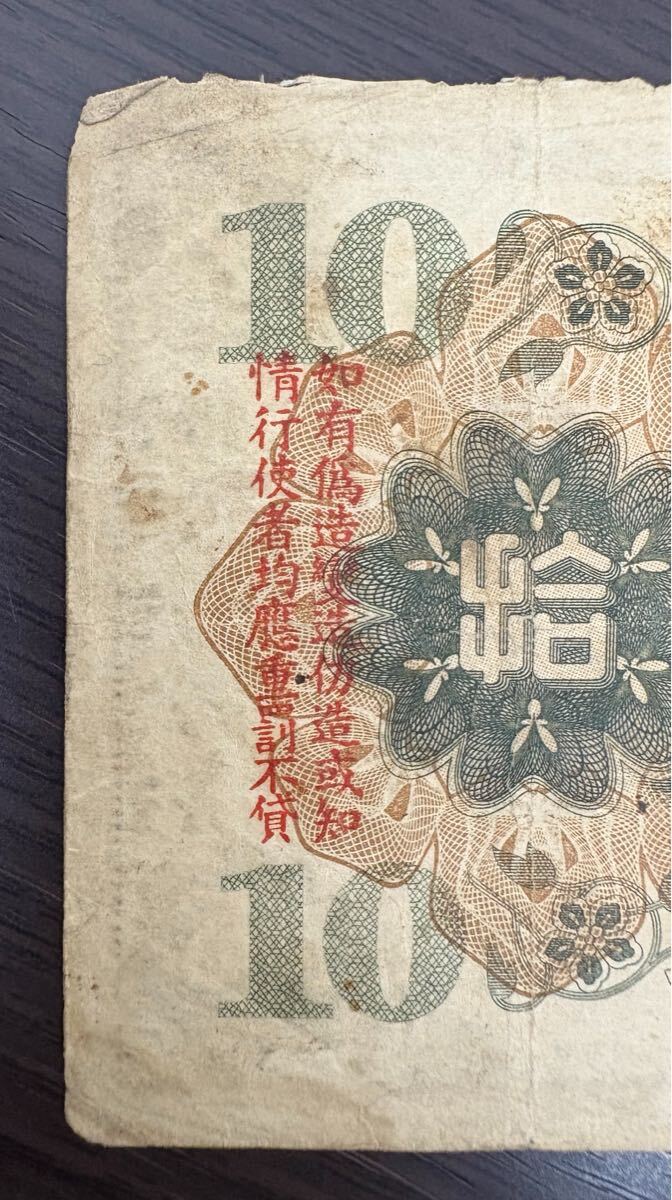 10
如有僞造變造仿造或知
情行使者均應重罰不貸
拾
10